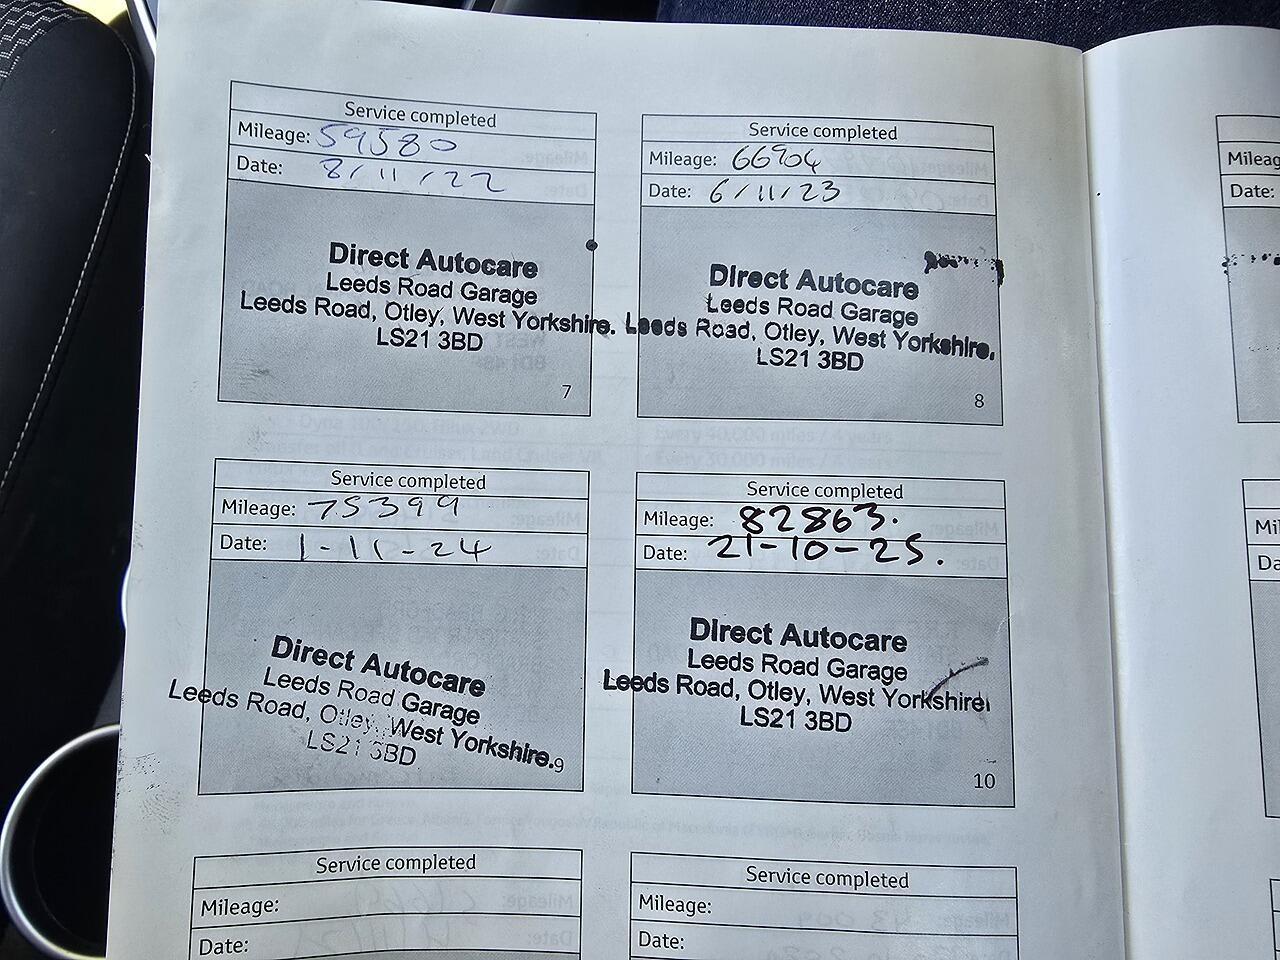 Service completed
Mileage: 59580
Date: 8/11/22
Direct Autocare
Leeds Road Garage
Leeds Road, Otley, West Yorkshire.
LS21 3BD
7
Service completed
Mileage: 66904
Date: 6/11/23
Direct Autocare
Leeds Road Garage
Leeds Road, Otley, West Yorkshire.
LS21 3BD
8
Service completed
Mileage: 75399
Date: 1-11-24
Direct Autocare
Leeds Road Garage
Leeds Road, Otley, West Yorkshire.
LS21 3BD
9
Service completed
Mileage: 82863.
Date: 21-10-25.
Direct Autocare
Leeds Road Garage
Leeds Road, Otley, West Yorkshire
LS21 3BD
10
Service completed
Mileage:
Date:
Service completed
Mileage:
Date:
Date: